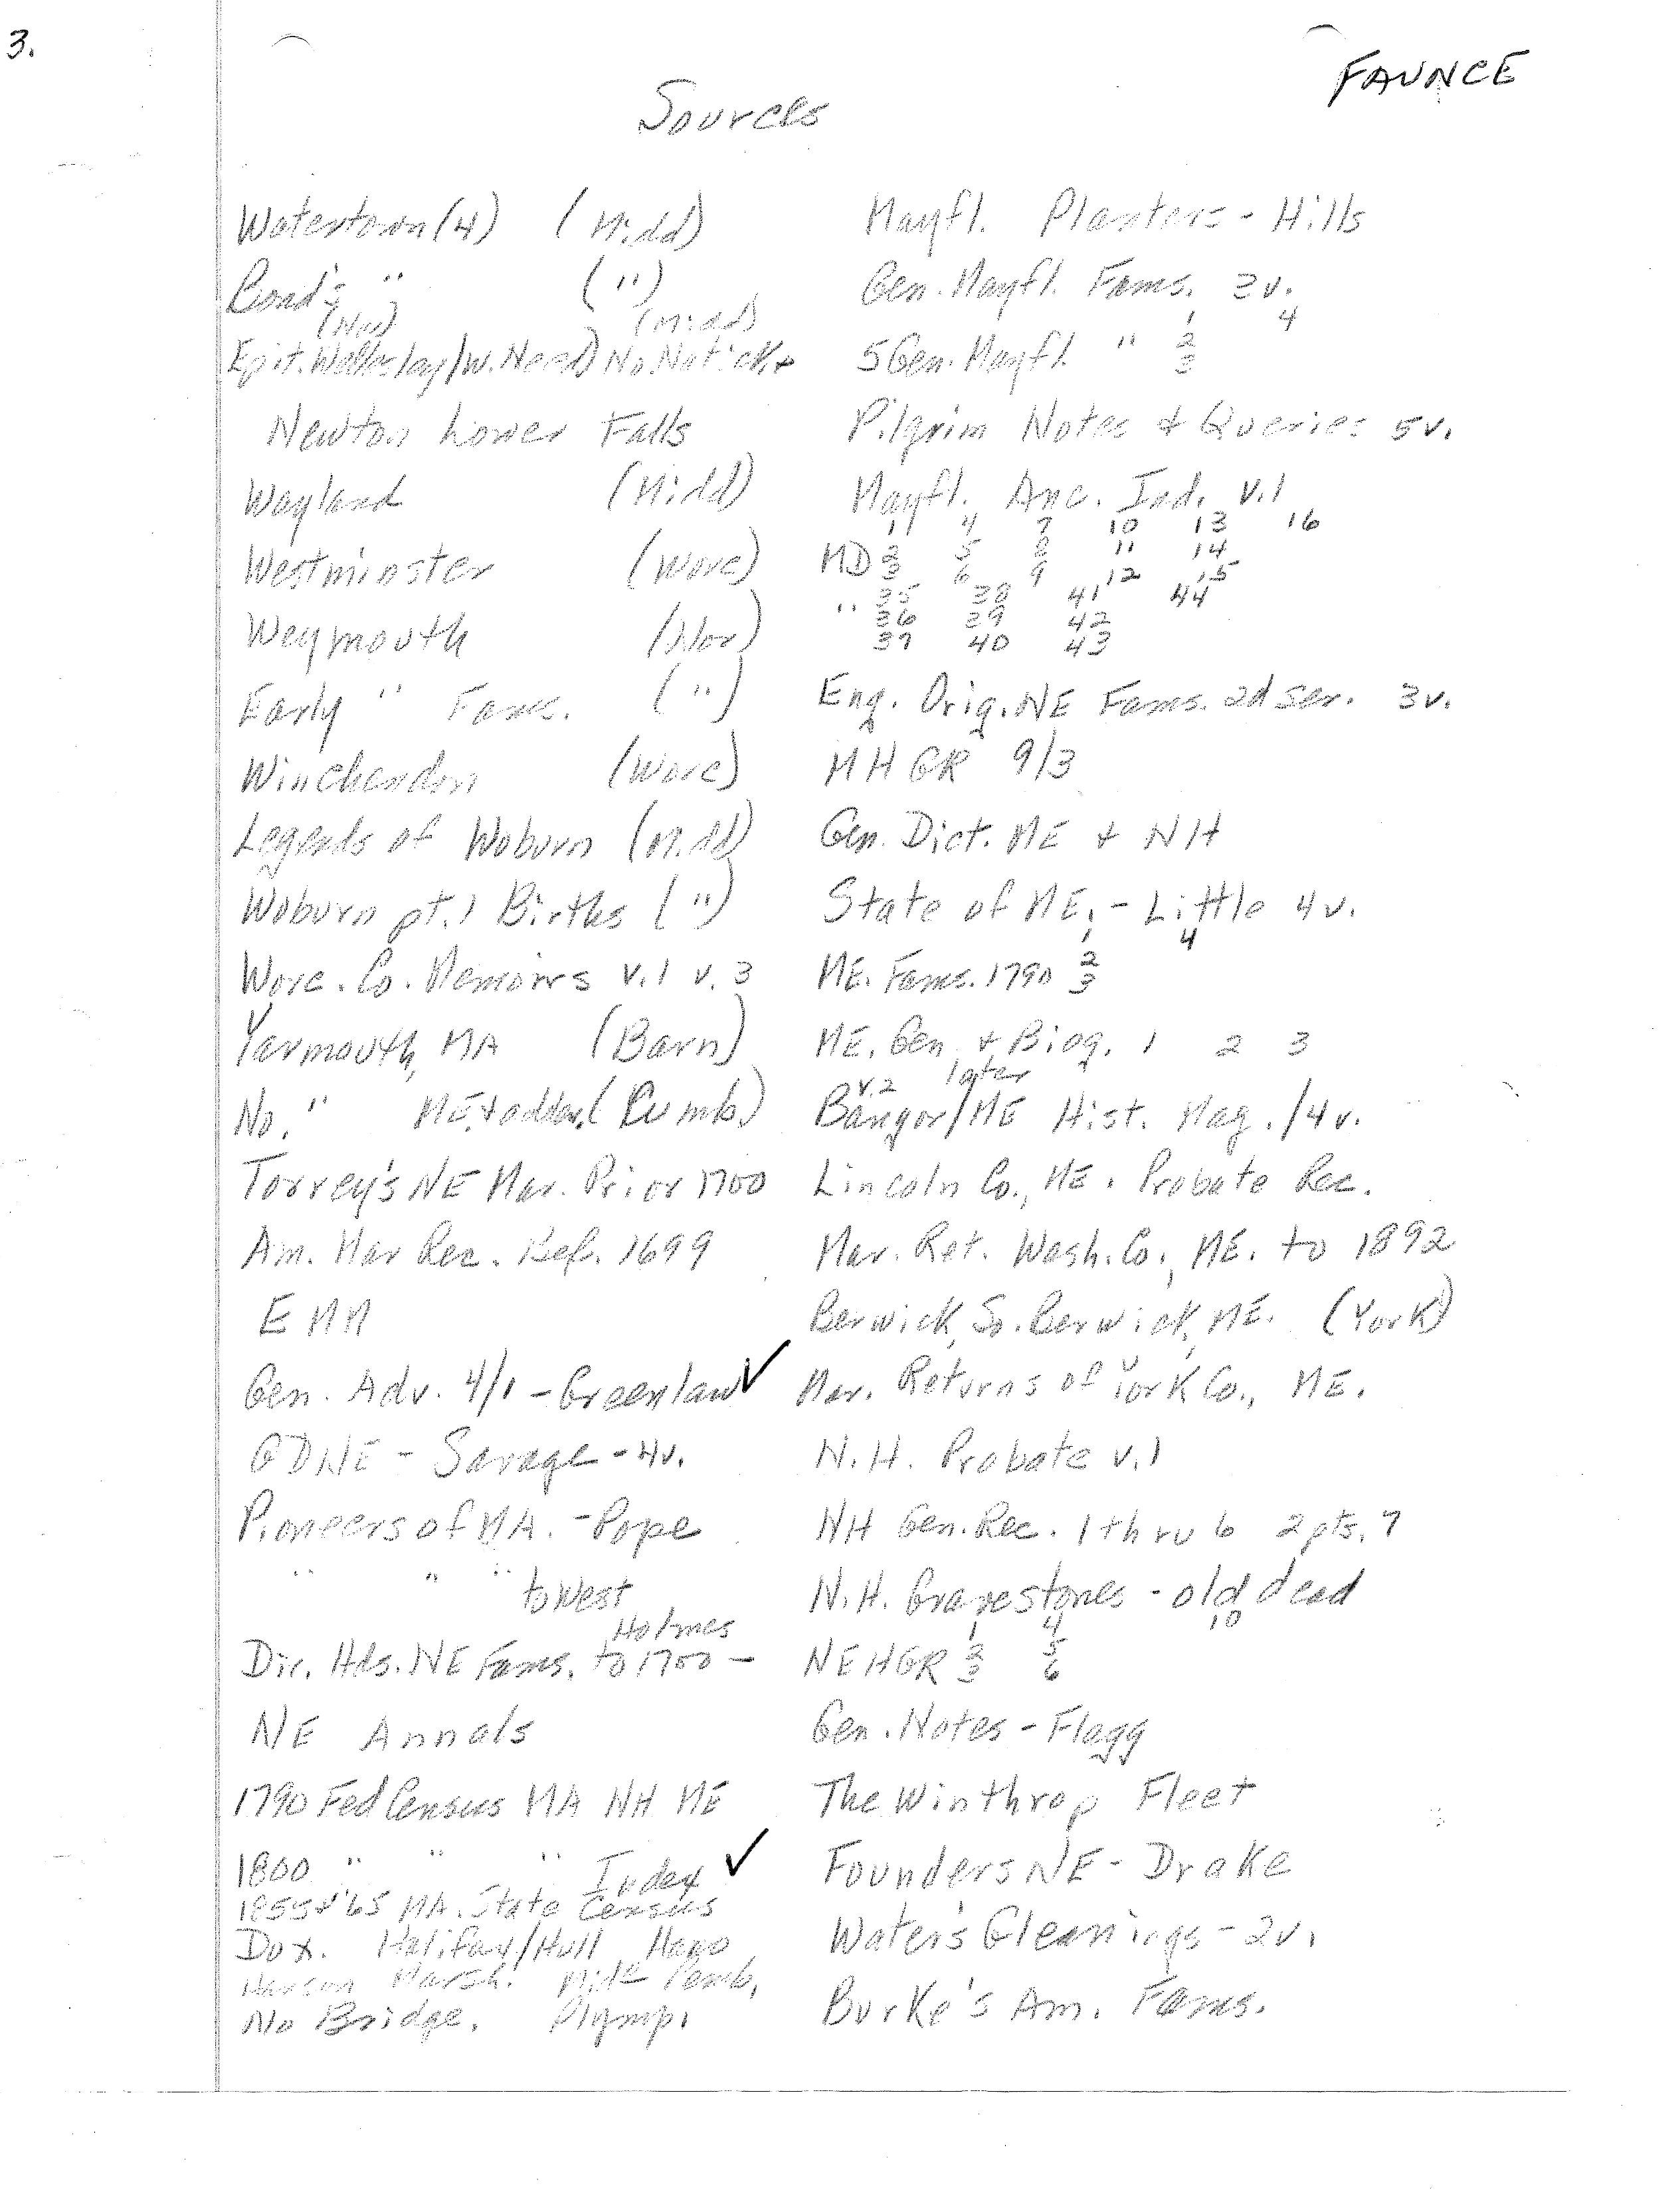 3.
FAUNCE
Sources
Watertown (4) (Midd)
Bond's " (")
(Nor) (Midd)
Epit. Wellesley/W. Need) No. Natick +
Newton Lower Falls
Wayland (Midd)
Westminster (Worc)
Weymouth (Nor)
Early " Fams. (")
Winchendon (Worc)
Legends of Woburn (Midd)
Woburn pt. 1 Births (")
Worc. Co. Memoirs v.1 v.3
Yarmouth, MA (Barn)
No. " ME. + adden. (Cumb.)
Torrey's NE Mar. Prior 1700
Am. Mar Rec. Bef. 1699
EMM
Gen. Adv. 4/1 - Greenlaw ✓
GDNE - Savage - 4v.
Pioneers of MA. - Pope
" " "
to West
Holmes
Dir. Hds. NE Fams. to 1700 -
NE Annals
1790 Fed Census MA NH ME
1800 " " " Index ✓
1855 + '65 MA. State Census
Dox. Halifax/Hull Hano
Hanson Marsh. Midd Pemb.
No Bridge. Plymp.
Mayfl. Planters - Hills
Gen. Mayfl. Fams. 3v.
1 4
5 Gen. Mayfl. " 2
3
Pilgrim Notes + Queries 5v.
Mayfl. Anc. Ind. v.1
1 4 7 10 13 16
MD 2 5 8 11 14
3 6 9 12 15
35 38 41 44
" 36 39 42
37 40 43
Eng. Orig. NE Fams. 2d ser. 3v.
MHGR 9/3
Gen. Dict. ME + NH
State of ME. - Little 4v.
1 4
ME. Fams. 1790 2
3
ME. Gen + Biog. 1 2 3
v.2 later
Bangor/ME Hist. Mag./4v.
Lincoln Co., ME. Probate Rec.
Mar. Ret. Wash. Co., ME. to 1892
Berwick, So. Berwick, ME. (York)
Mar. Returns of York Co., ME.
N.H. Probate v.1
NH Gen. Rec. 1 thru 6 2 pts. 7
N.H. Gravestones - old dead
1 4 10
NEHGR 2 5
3 6
Gen. Notes - Flagg
The Winthrop Fleet
Founders NE - Drake
Water's Gleanings - 2v.
Burke's Am. Fams.